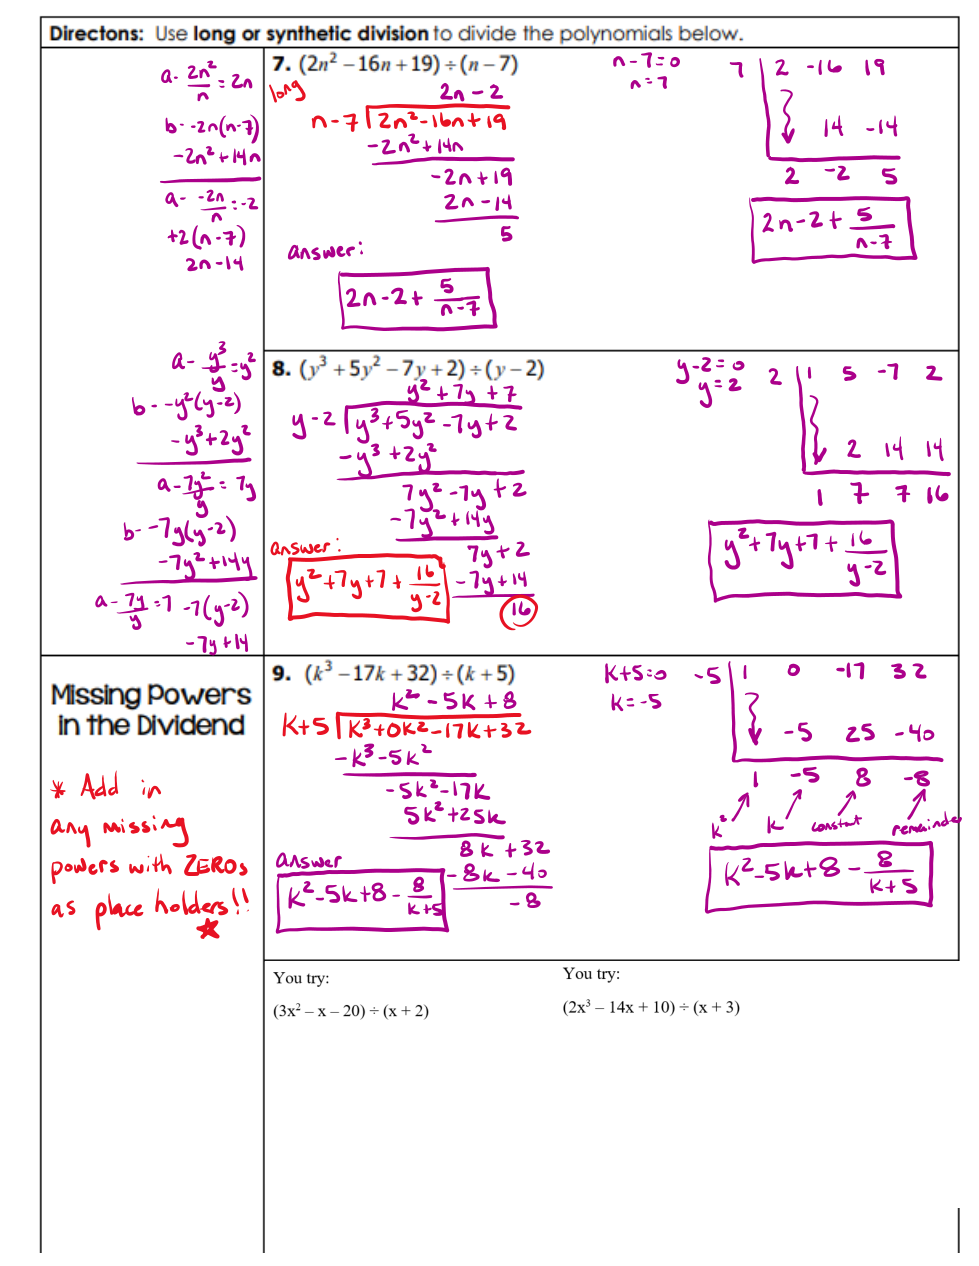 Directons: Use long or synthetic division to divide the polynomials below.
7. (2n² – 16n + 19) ÷ (n – 7)
a- 2n²/n = 2n
b- -2n(n-7)
-2n² + 14n
a- -2n/n = -2
+2(n-7)
2n-14
long
2n - 2
n-7 2n²-16n+19
-2n²+14n
-2n+19
2n-14
5
answer:
2n-2+ 5/(n-7)
n-7=0
n=7
7 | 2 -16 19
14 -14
2 -2 5
2n-2+ 5/(n-7)
8. (y³ + 5y² – 7y + 2) ÷ (y – 2)
a- y³/y = y²
b- -y²(y-2)
-y³+2y²
a- 7y²/y = 7y
b- -7y(y-2)
-7y²+14y
a- 7y/y =7 -7(y-2)
-7y+14
y² + 7y + 7
y-2 y³+5y²-7y+2
-y³+2y²
7y²-7y+2
-7y²+14y
7y+2
-7y+14
16
answer:
y²+7y+7+ 16/(y-2)
y-2=0
y=2
2 | 1 5 -7 2
2 14 14
1 7 7 16
y²+7y+7+ 16/(y-2)
Missing Powers
in the Dividend
* Add in
any missing
powers with ZEROs
as place holders!!
9. (k³ – 17k + 32) ÷ (k + 5)
k² - 5k + 8
k+5 k³+0k²-17k+32
-k³-5k²
-5k²-17k
5k²+25k
8k+32
-8k-40
-8
answer
k²-5k+8- 8/(k+5)
k+5=0
k=-5
-5 | 1 0 -17 32
-5 25 -40
1 -5 8 -8
k² k constant remainder
k²-5k+8- 8/(k+5)
You try:
(3x² – x – 20) ÷ (x + 2)
You try:
(2x³ – 14x + 10) ÷ (x + 3)